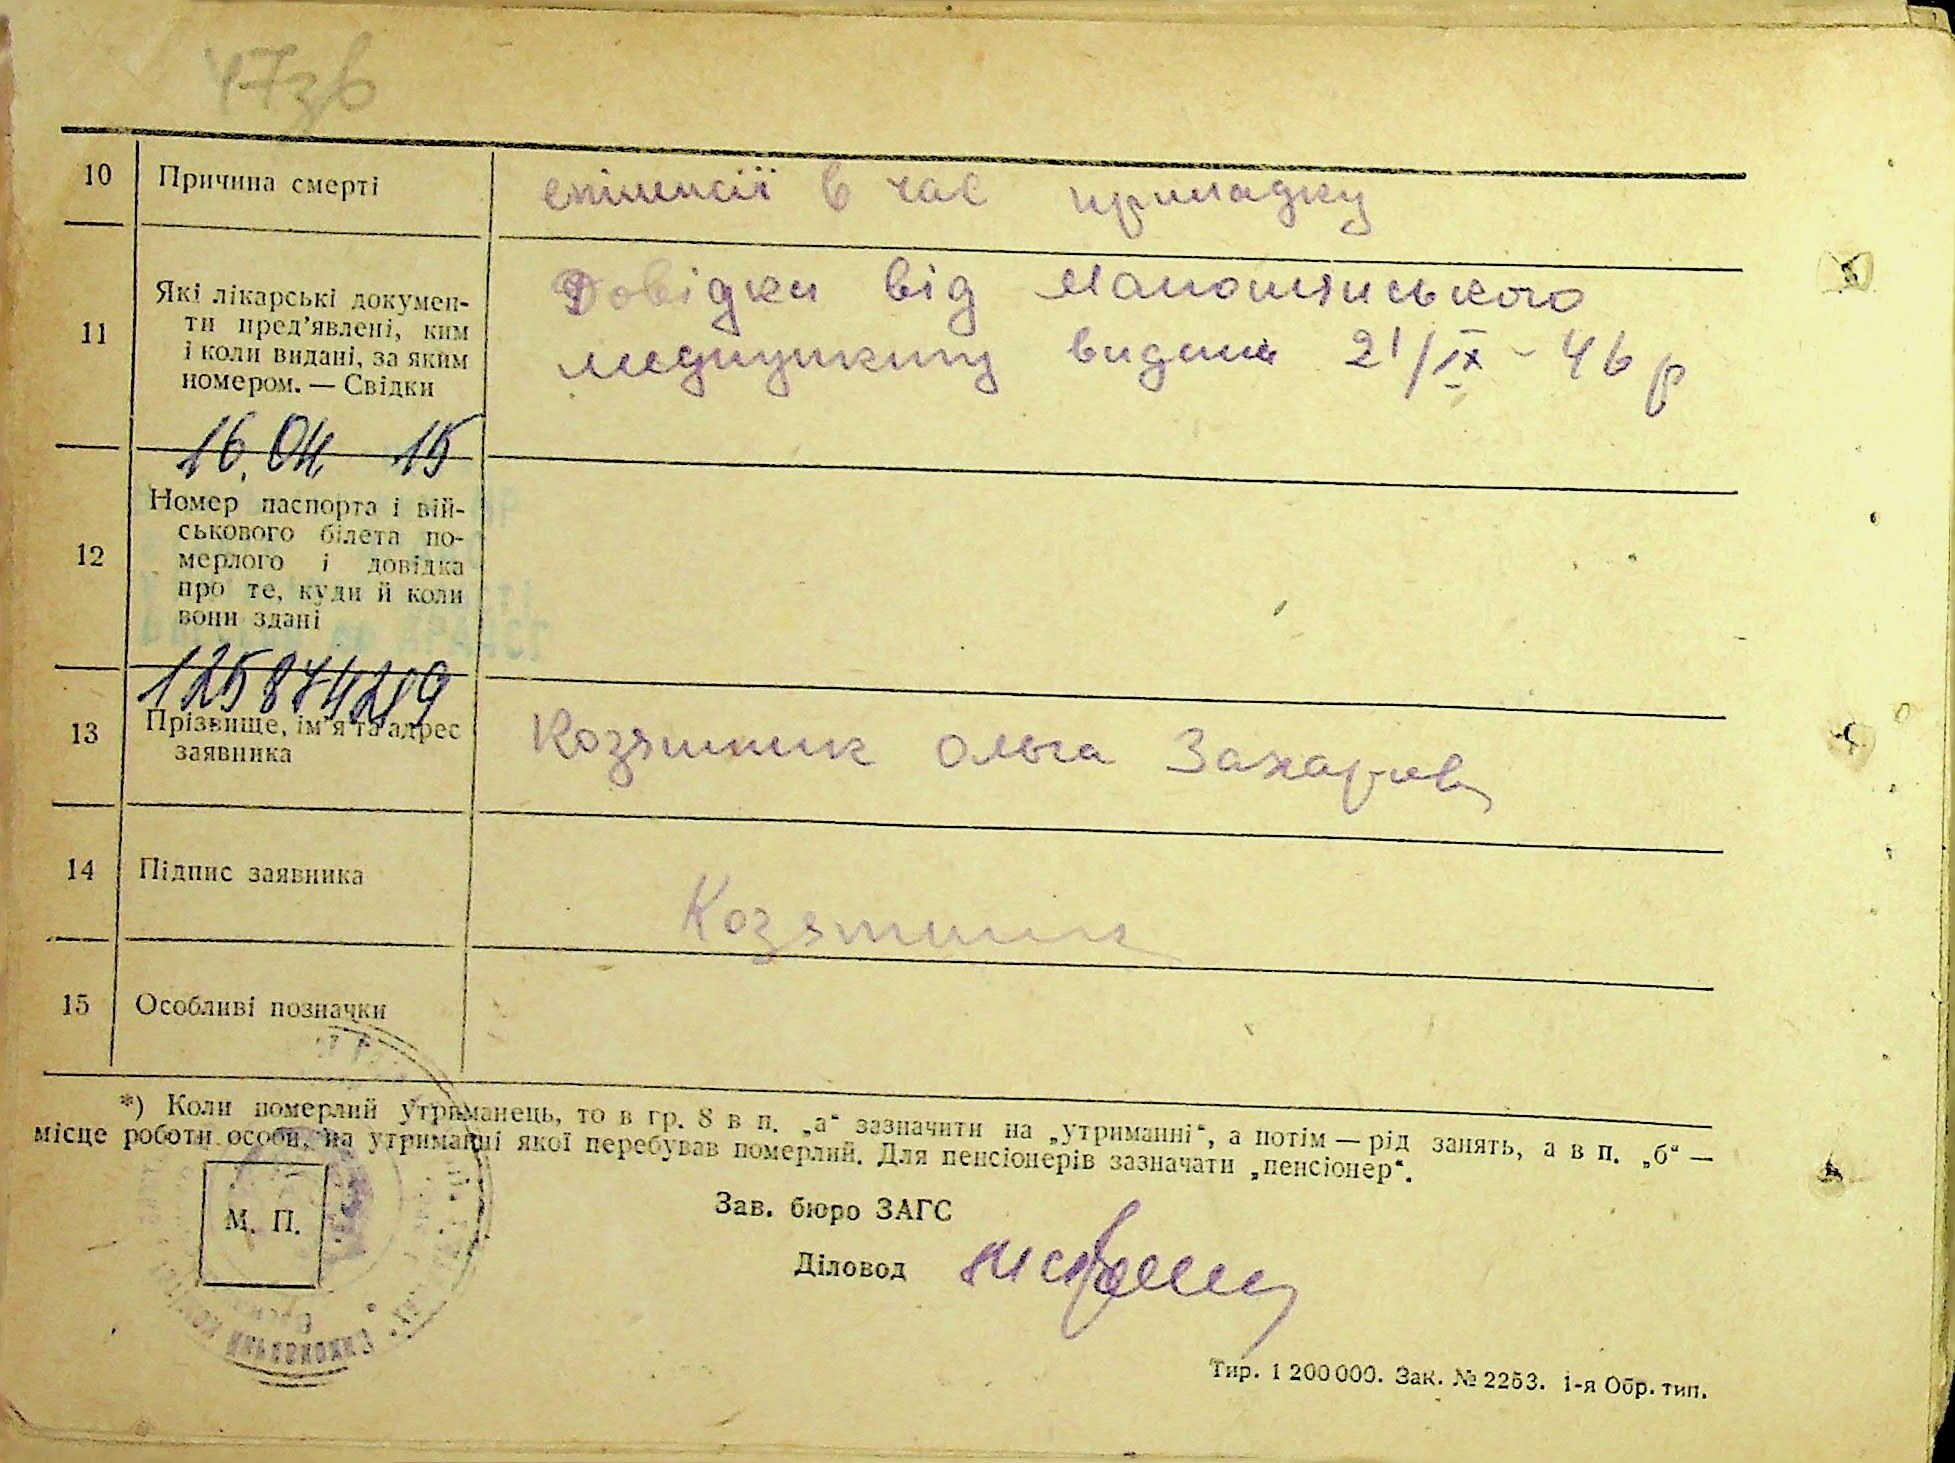 47зв
10 Причина смерті епілепсії в час припадку
11 Які лікарські докумен-
ти пред'явлені, ким
і коли видані, за яким
номером. — Свідки
Довідки від
медпункту видана 21/IX - 46 р
16.04 15
12 Номер паспорта і вій-
ськового білета по-
мерлого і довідка
про те, куди й коли
вони здані
125874219
13 Прізвище, ім'я та адрес
заявника
Ольга Захаров
14 Підпис заявника
15 Особливі позначки
*) Коли померлий утриманець, то в гр. 8 в п. „а“ зазначити на „утриманні“, а потім — рід занять, а в п. „б“ —
місце роботи особи, на утриманні якої перебував померлий. Для пенсіонерів зазначати „пенсіонер“.
М. П.
Зав. бюро ЗАГС
Діловод
Тир. 1 200 000. Зак. № 2253. 1-я Обр. тип.